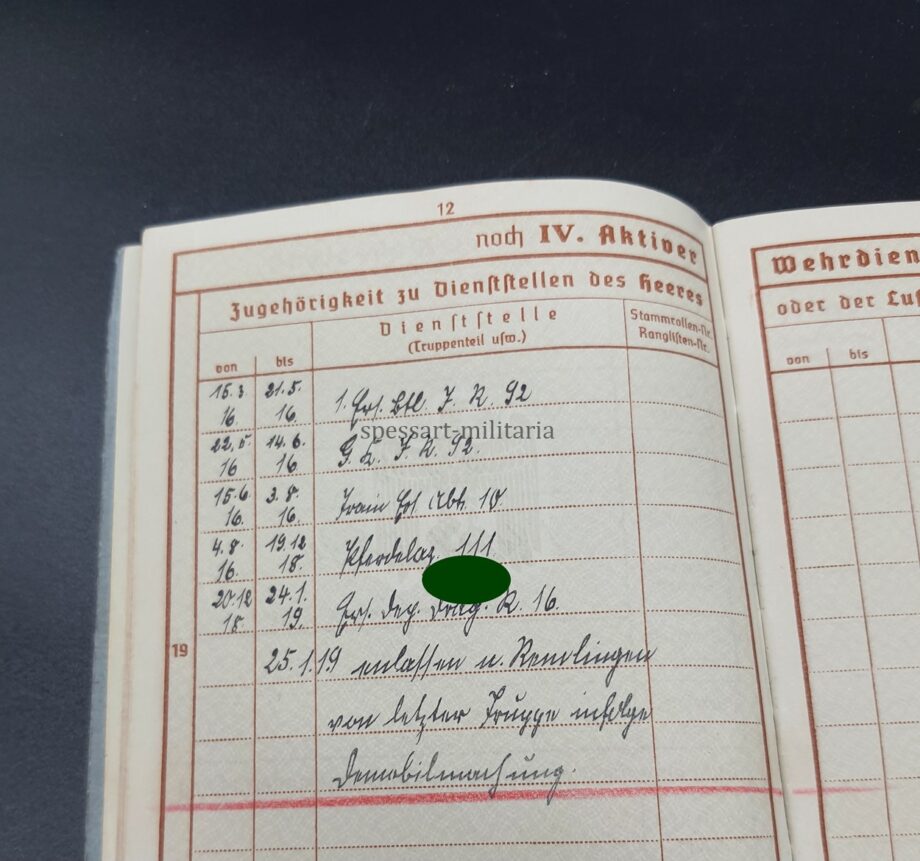 12
noch IV. Aktiver
Zugehörigkeit zu Dienststellen des Heeres
von
bis
Dienststelle
(Truppenteil usw.)
Stammrollen-Nr.
Ranglisten-Nr.
15.3. 21.5. 1. Ers. Btl. J. R. 92
16. 16.
22.5. 14.6. J. R. 92.
16 16
spessart-militaria
15.6. 3.8. Train Ers Abt. 10
16. 16.
4.8. 19.12 Pferdelaz. 111.
16. 18.
20.12 24.1. Ers. Drag. R. 16.
18. 19.
19
25.1.19 entlassen n. Remlingen
von letzter Truppe infolge
Demobilmachung.
Wehrdien
oder der Luf
von
bis